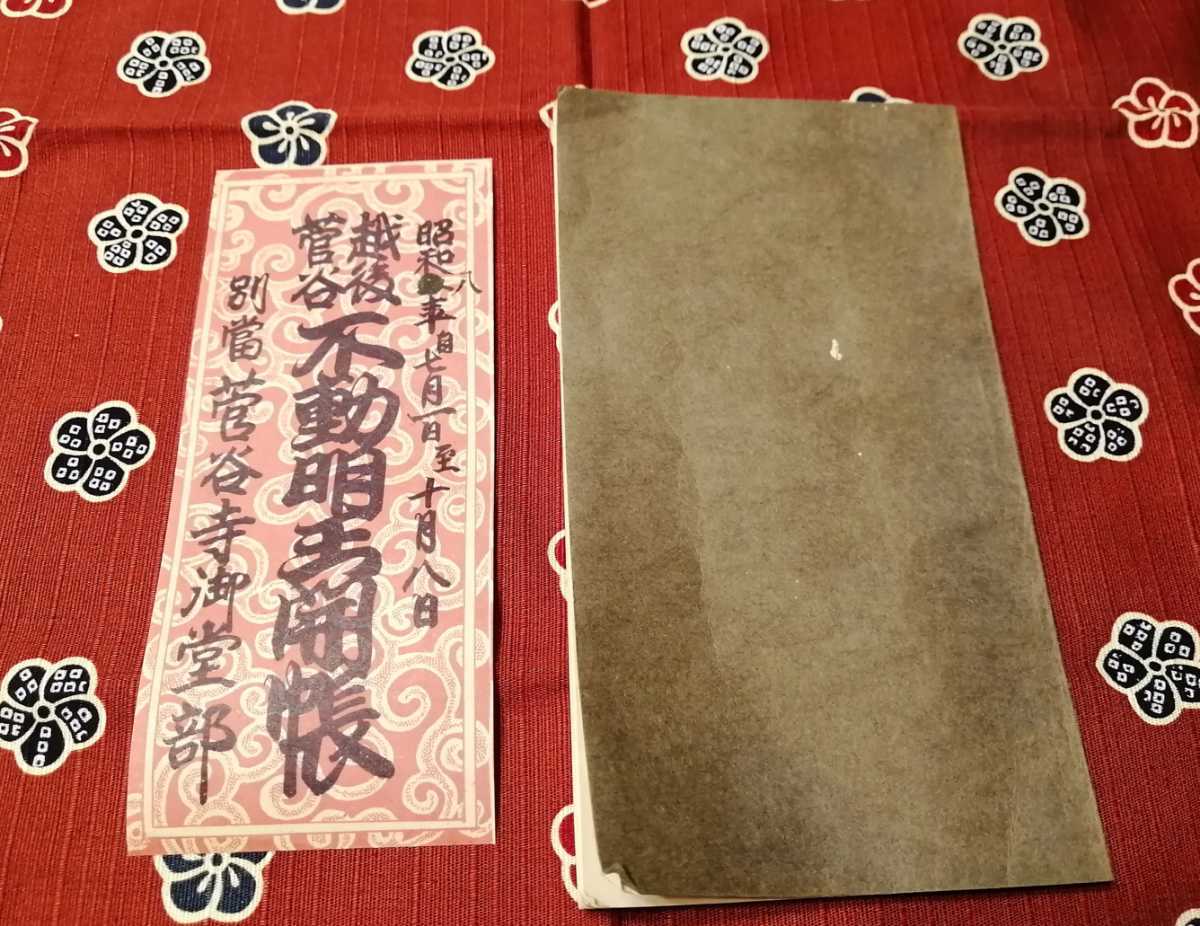 昭和八年自七月一日至十月八日
越後
菅谷
不動明王開帳
別當菅谷寺御堂部